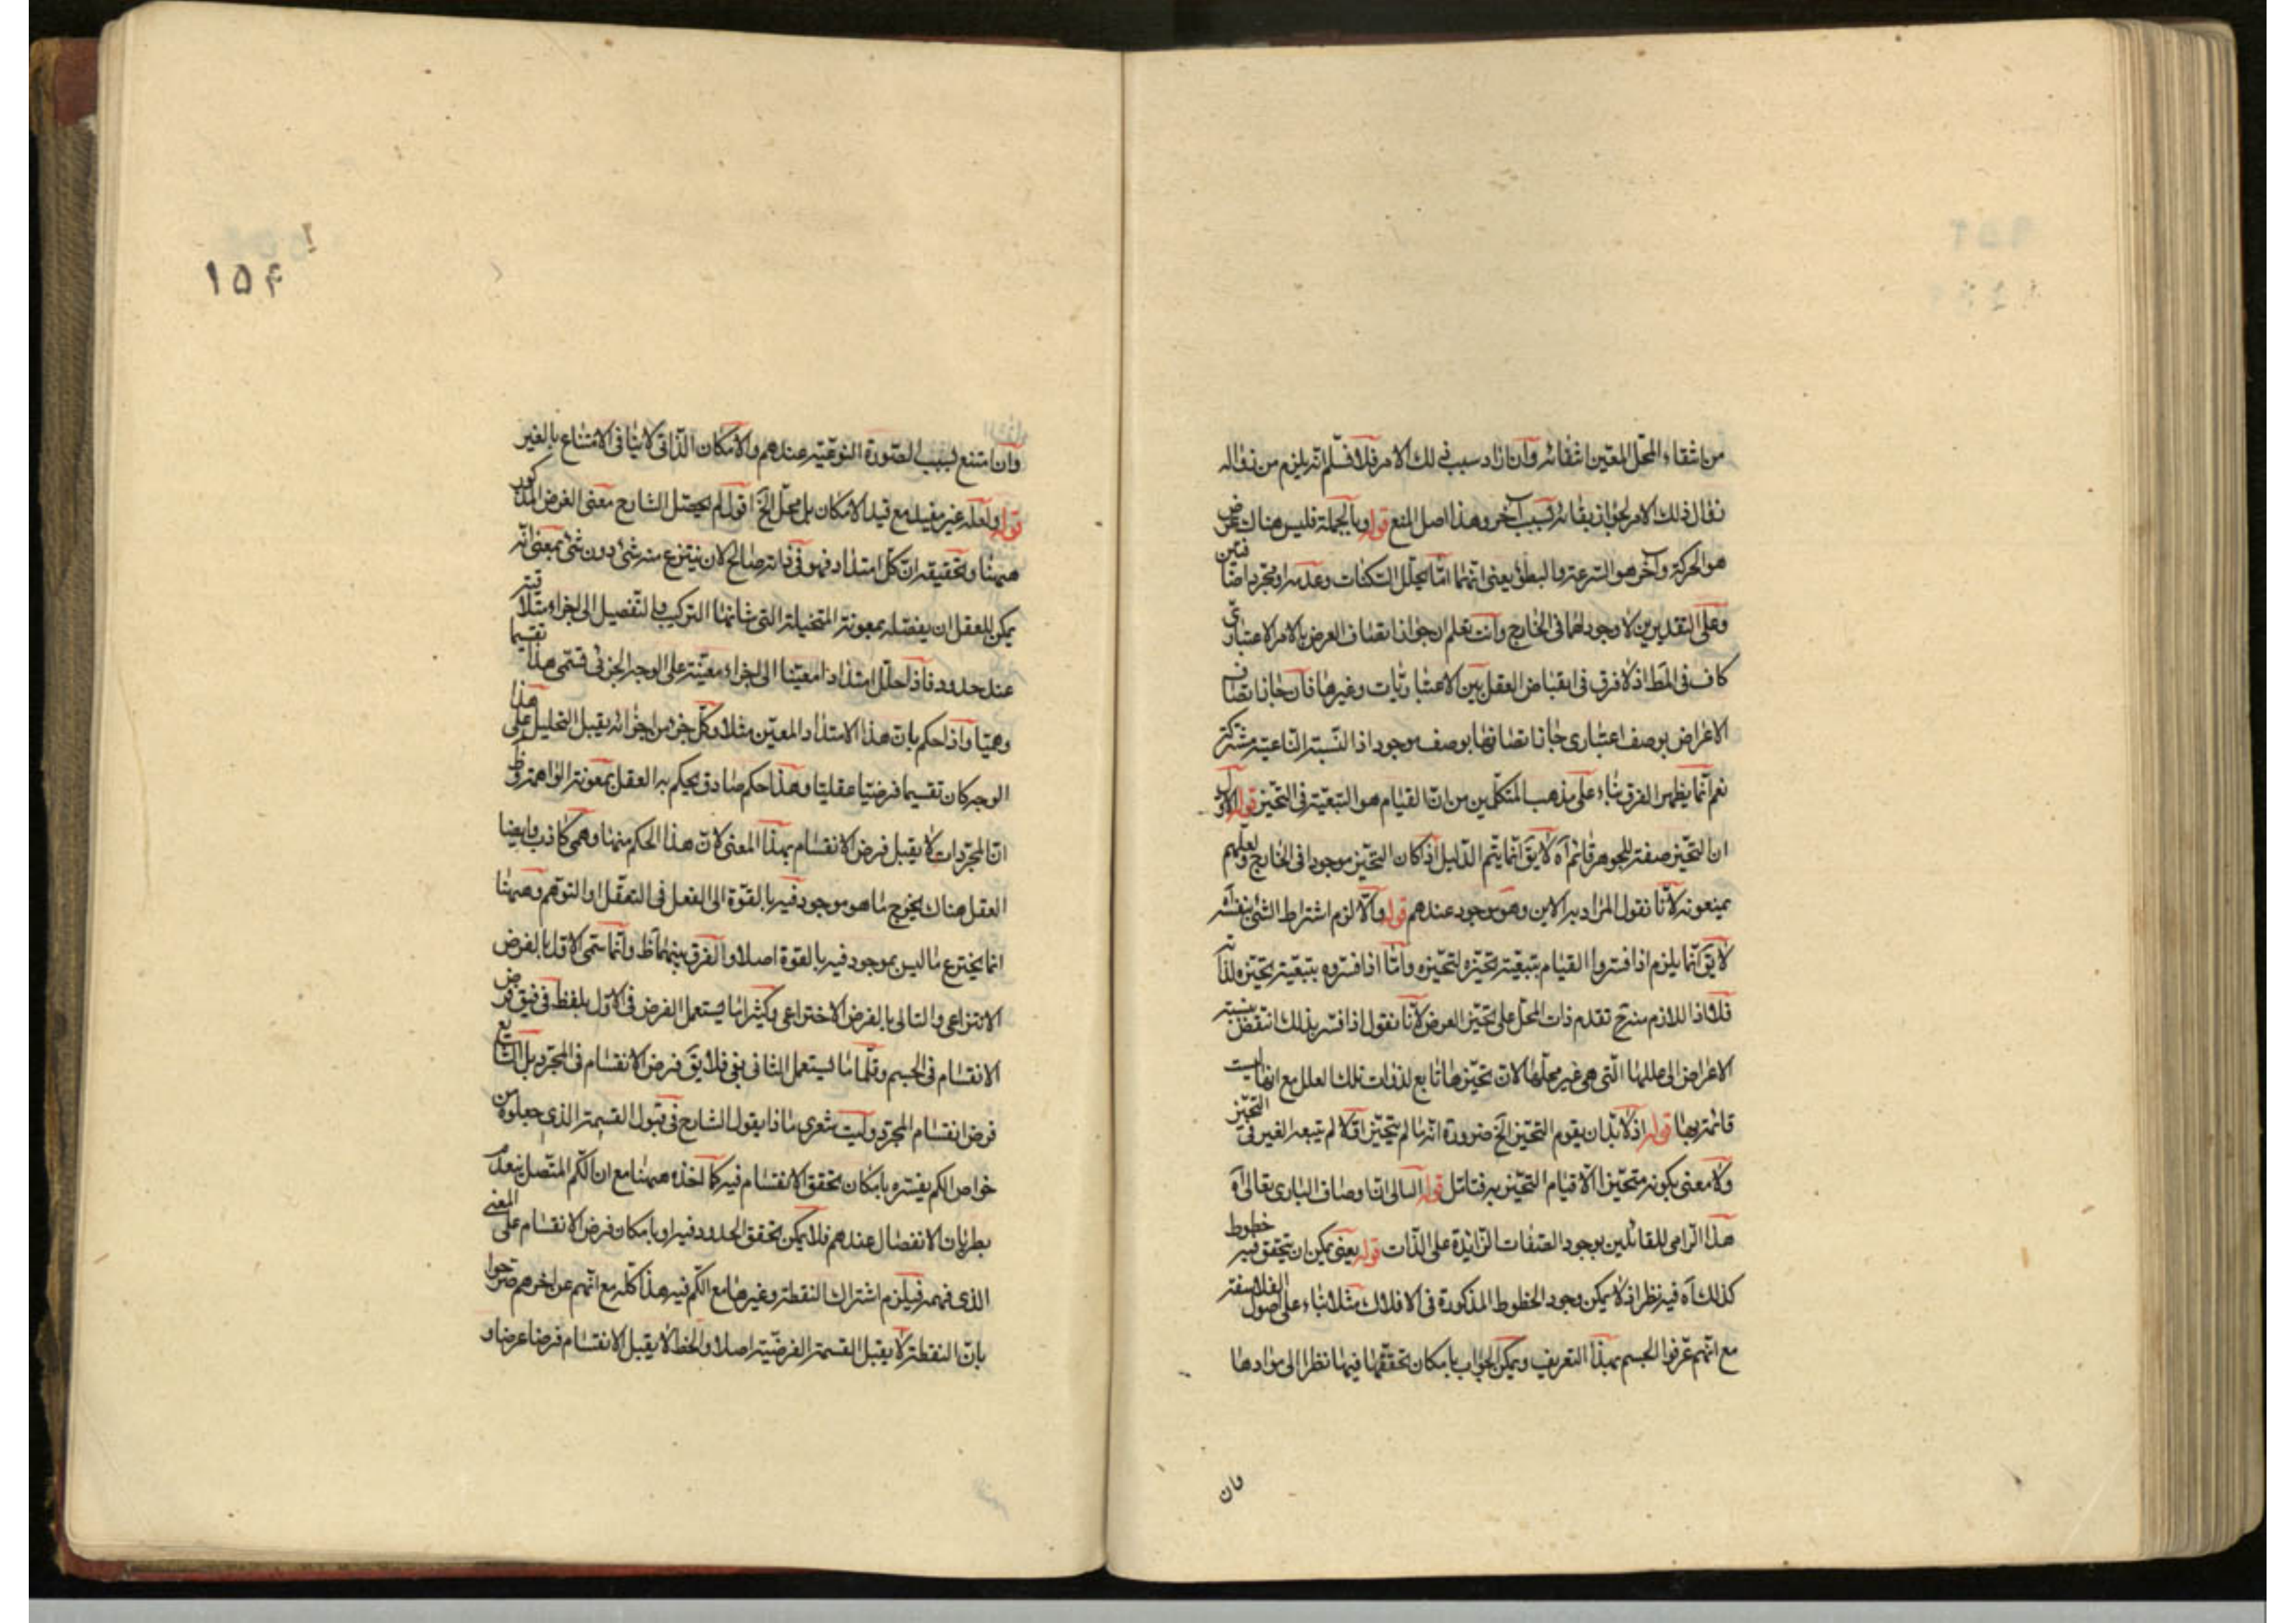 من انتفاء المحل المعين انتفائه وان اراد سبب ذلك الامر فلا فسلم انه يلزم من زواله
زوال ذلك الامر لجواز بقائه بسبب آخر وهذا اصل المنع قوله وبالجملة فليس هناك عرض
هو الحركة وآخر هو السرعة والبطؤ يعنى انهما امّا تخلل السكنات وعدمه او مجرد اضافتين
وعلى التقديرين لا وجود لهما فى الخارج وانت تعلم ان جواز اتصاف العرض بالامر الاعتبارى
كاف فى المط اذ لا فرق فى انقباض العقل بين الاعتباريات وغيرها فان جاز اتصاف
الاعراض بوصف اعتبارى جاز اتصافها بوصف موجود اذ النسبة الناعتية مشتركة
نعم انما يظهر الفرق بناء على مذهب المتكلمين من ان القيام هو التبعية فى التحيز قوله الاول
ان التحيز صفة للجوهر قائم آه لا يق انما يتم الدليل اذ كان التحيز موجودا فى الخارج ولعلهم
يمنعونه لانا نقول المراد به الاين وهو موجود عندهم قوله والا لزم اشتراط الشئ بنفسه آه
لا يق انما يلزم اذا فسروا القيام بتبعية تحيزه لتحيزه وامّا اذا فسروه بتبعية تحيزه لذاته
فلا اذ اللازم منه ح تقدم ذات المحل على تحيز العرض لانا نقول اذا فسر بذلك انتقض بنسبة
الاعراض الى عللها التى هى غير محلها لان تحيزها تابع لذوات تلك العلل مع انها ليست
قائمة بها قوله اذ لا بد ان يقوم التحيز الخ ضرورة انه ما لم يتحيز اولا لم يتبعه الغير فى التحيز
ولا معنى لكونه متحيزا الا قيام التحيز به فتامل قوله الثانى ان اوصاف البارى تعالى آه
هذا الزامى للقائلين بوجود الصفات الزائدة على الذات قوله يعنى يمكن ان يتحقق فيه خطوط
كذلك آه فيه نظر اذ لا يمكن وجود الخطوط المذكورة فى الافلاك مثلا بناء على اصول الفلاسفة
مع انهم عرفوا الجسم بهذا التعريف ويمكن الجواب بامكان تحققها فيها نظرا الى موادها
وان
۱۵۴
وان امتنع بسبب الصورة النوعية عندهم والامكان الذاتى لا ينافى الامتناع بالغير
قوله ولعله غير مفيد مع قيد الامكان بل مخل الخ اقول لم يحصل الشارح معنى الفرض المذكور
ههنا وتحقيقه ان كل امتداد فهو فى ذاته صالح لان ينتزع منه شئ دون شئ بمعنى انه
يمكن للعقل ان يفصله بمعونة المتخيلة التى شانها التركيب والتفصيل الى اجزاء متلاقية
عند حدود فاذا حلل امتدادا معينا الى اجزاء معينة على الوجه الجزئى فسمى هذا تقسيما
وهميا واذا حكم بان هذا الامتداد المعين مثلا وكل جزء من اجزائه يقبل التحليل على هذا
الوجه كان تقسيما فرضيا عقليا وهذا حكم صادق يحكم به العقل بمعونة الواهمة وظ
ان المجردات لا يقبل فرض الانقسام بهذا المعنى لان هذا الحكم منها وهمى كاذب وايضا
العقل هناك يخرج ما هو موجود فيه بالقوة الى الفعل فى التعقل او التوهم وههنا
انما يخترع ما ليس بموجود فيه بالقوة اصلا والفرق بينهما ظ وانما سمى الاول بالفرض
الانتزاعى والتالى بالفرض الاختراعى وكثيرا ما يستعمل الفرض فى الاول بلفظ فى فيق فرض
الانقسام فى الجسم وقلما ما يستعمل الثانى بفى فلا يق فرض الانقسام فى المجرد بل الشايع
فرض انقسام المجرد وليت شعرى ماذا يقول الشارح فى قبول القسمة الذى جعلوه من
خواص الكم يفسره بامكان تحقق الانقسام فيه كما اخذه ههنا مع ان الكم المتصل ينعدم
بطريان الانفصال عندهم فلا يمكن تحقق الحدود فيه او بامكان فرض الانقسام على المعنى
الذى فهمه فيلزم اشتراك النقطة وغيرها مع الكم فيه هذا كله مع انهم عن اخرهم صرحوا
بان النقطة لا يقبل القسمة الفرضية اصلا والخط لا يقبل الانقسام فرضا عرضا و